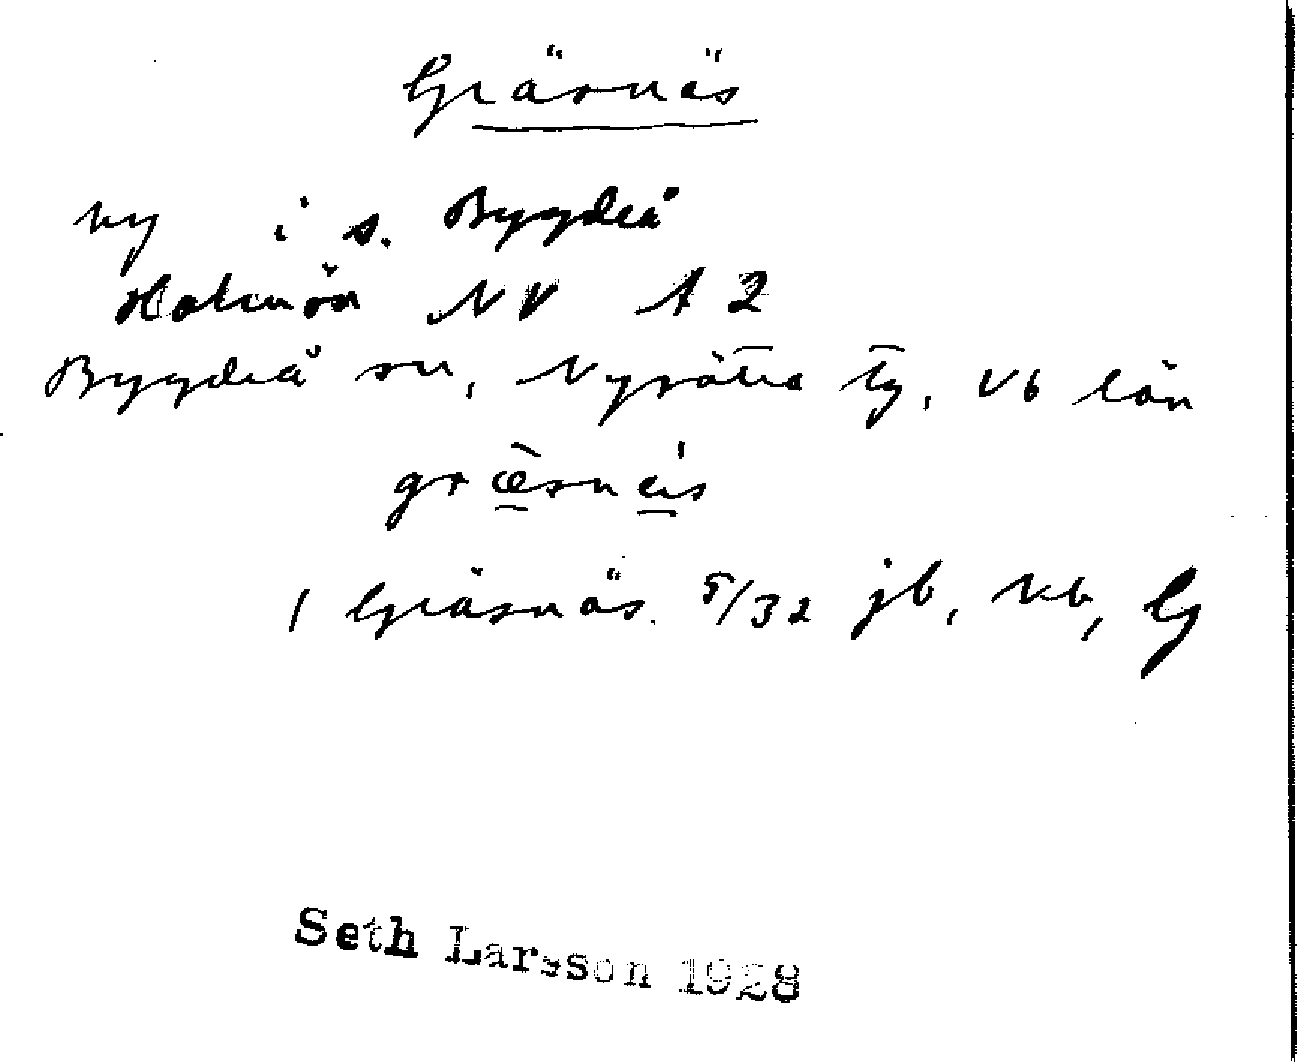 Gräsnäs
by i s. Bygdeå
Holmön NV A 2
Bygdeå sn, Nysätra tg, Vb län
græ̀snäs
1 Gräsnäs. 5/32 jb, kb, G
Seth Larsson 1928